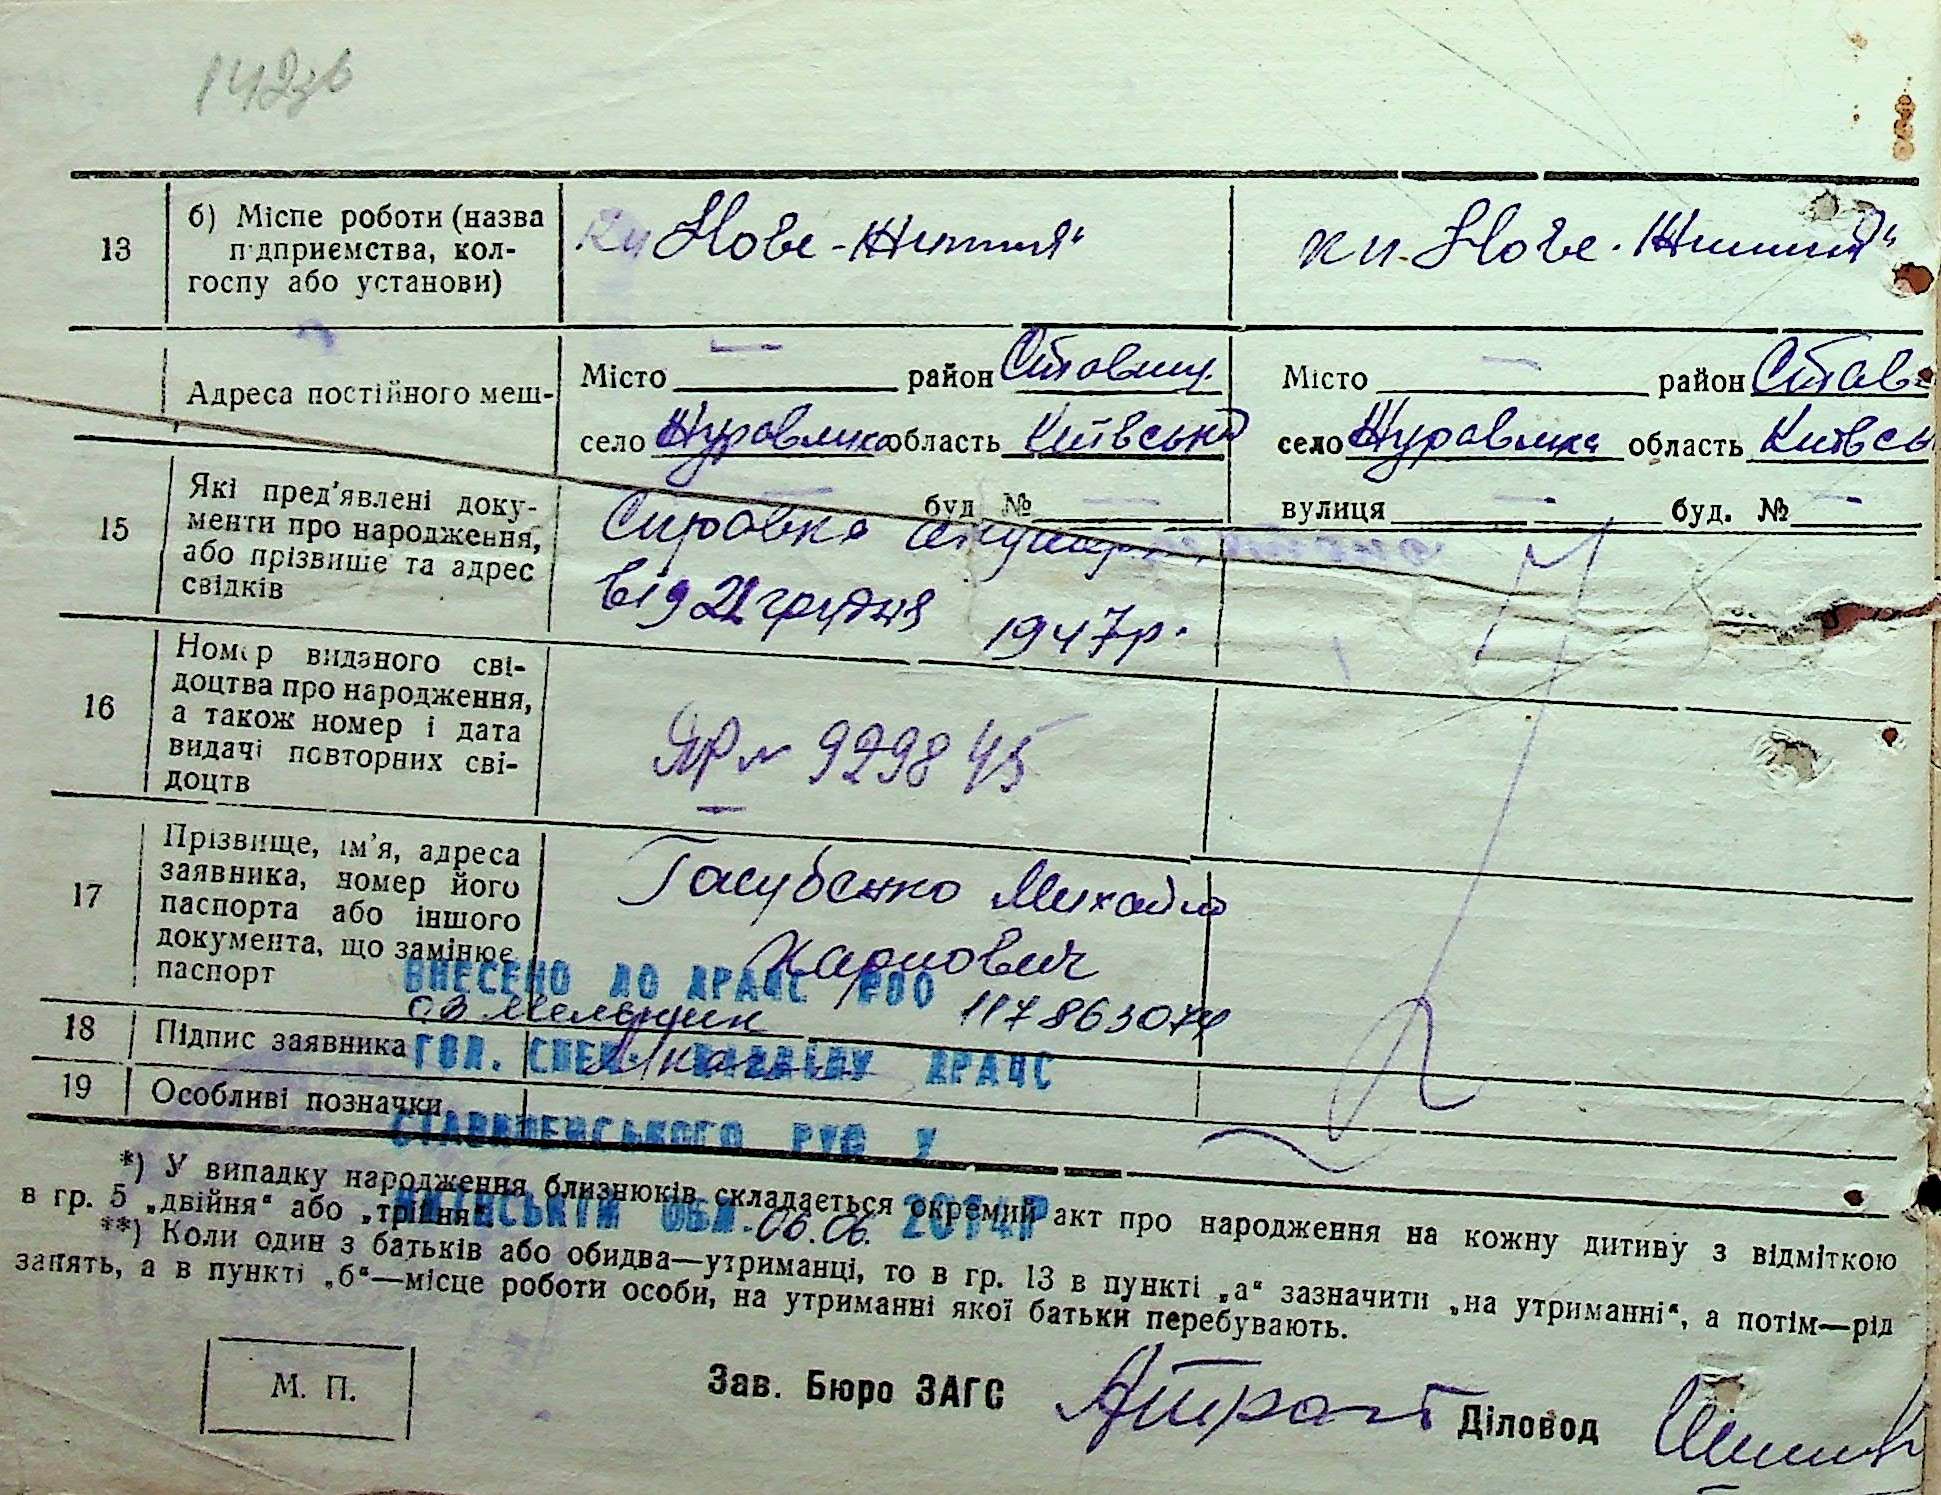 142зв
13
б) Місце роботи (назва
підприємства, кол-
госпу або установи)
„Нове-Життя“
кп. „Нове-Життя“
Адреса постійного меш-
Місто — район Ставищ.
село Журавлиха область Київська
буд №
Місто — район Став
село Журавлиха область Київсь
вулиця — буд. № —
15
Які пред'явлені доку-
менти про народження,
або прізвище та адрес
свідків
Справка акушерк
від 21 грудня 1947р.
16
Номер виданого сві-
доцтва про народження,
а також номер і дата
видачі повторних сві-
доцтв
ЯР № 929845
17
Прізвище, ім'я, адреса
заявника, номер його
паспорта або іншого
документа, що замінює
паспорт
Михайло
Карпович
ВНЕСЕНО ДО ДРАЦС
О.В Мельник 117863074
18
Підпис заявника
ГОЛ. СПЕЦ. ВІДДІЛУ ДРАЦС
19
Особливі позначки
СТАВИЩЕНСЬКОГО РУЮ У
КИЇВСЬКІЙ ОБЛ. 06.06. 2014Р
*) У випадку народження близнюків складається окремий акт про народження на кожну дитину з відміткою
в гр. 5 „двійня“ або „трійня“
**) Коли один з батьків або обидва—утриманці, то в гр. 13 в пункті „а“ зазначити „на утриманні“, а потім—рід
занять, а в пункті „б“—місце роботи особи, на утриманні якої батьки перебувають.
М. П.
Зав. Бюро ЗАГС
Діловод